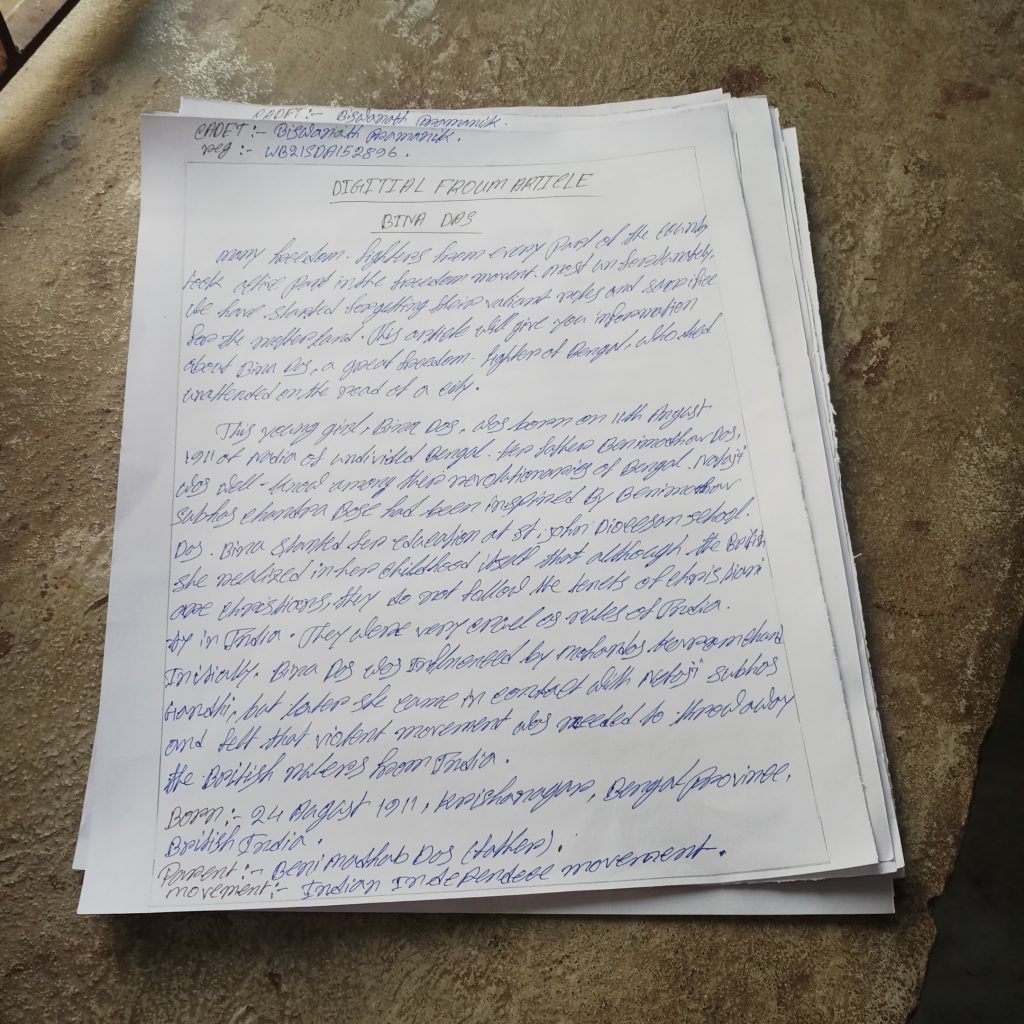 CADET :- Biswanath Pramanik.
CADET :- Biswanath Pramanik.
reg :- WB21SDA152896.
DIGITIAL FROUM ARTICLE
BINA DAS
many freedom-fighters from every part of the country
took active part in the freedom movent. most unforatunately,
We have started forgetting their valiant roles and sacrifice
for the motherland. This article will give you information
about Bina Das, a great freedom-fighter of Bengal, who died
unattended on the road of a city.
This young girl, Bina Das, was born on 11th August
1911 at Nadia of undivided Bengal. her father Benimadhav Das,
was well-knod among their revolutionaries of Bengal. Netaji
Subhas Chandra Bose had been inspired By Benimadhav
Das. Bina started her education at St. John Diocesan School.
she realized in her childhood itself that although the British
are christians, they do not follow the tenets of christiani
ty in India. They were very cruel as rules of India.
Initially. Bina Das was influenced by mohandas karamchand
Gandhi, but later she came in contact with Netaji Subhas
and felt that violent movement was needed to throw away
the British rulers from India.
Born :- 24 August 1911, krishanagar, Bengal Province,
British India.
Parent :- Beni madhab Das (father).
movement :- Indian Independece movement.